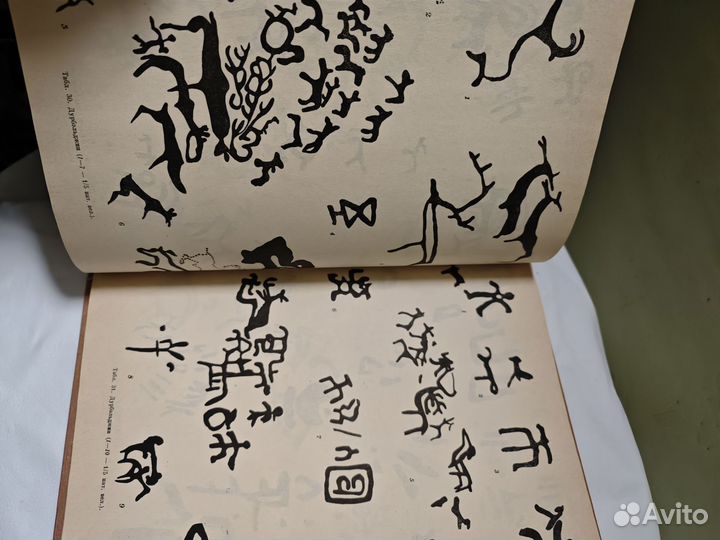 5
2
1
6
4
Табл. 30. Дурбольджин (1—7 — 1/5 нат. вел.).
8
7
2
3
5
9
Табл. 31. Дурбольджин (1—10 — 1/5 нат. вел.).
Avito